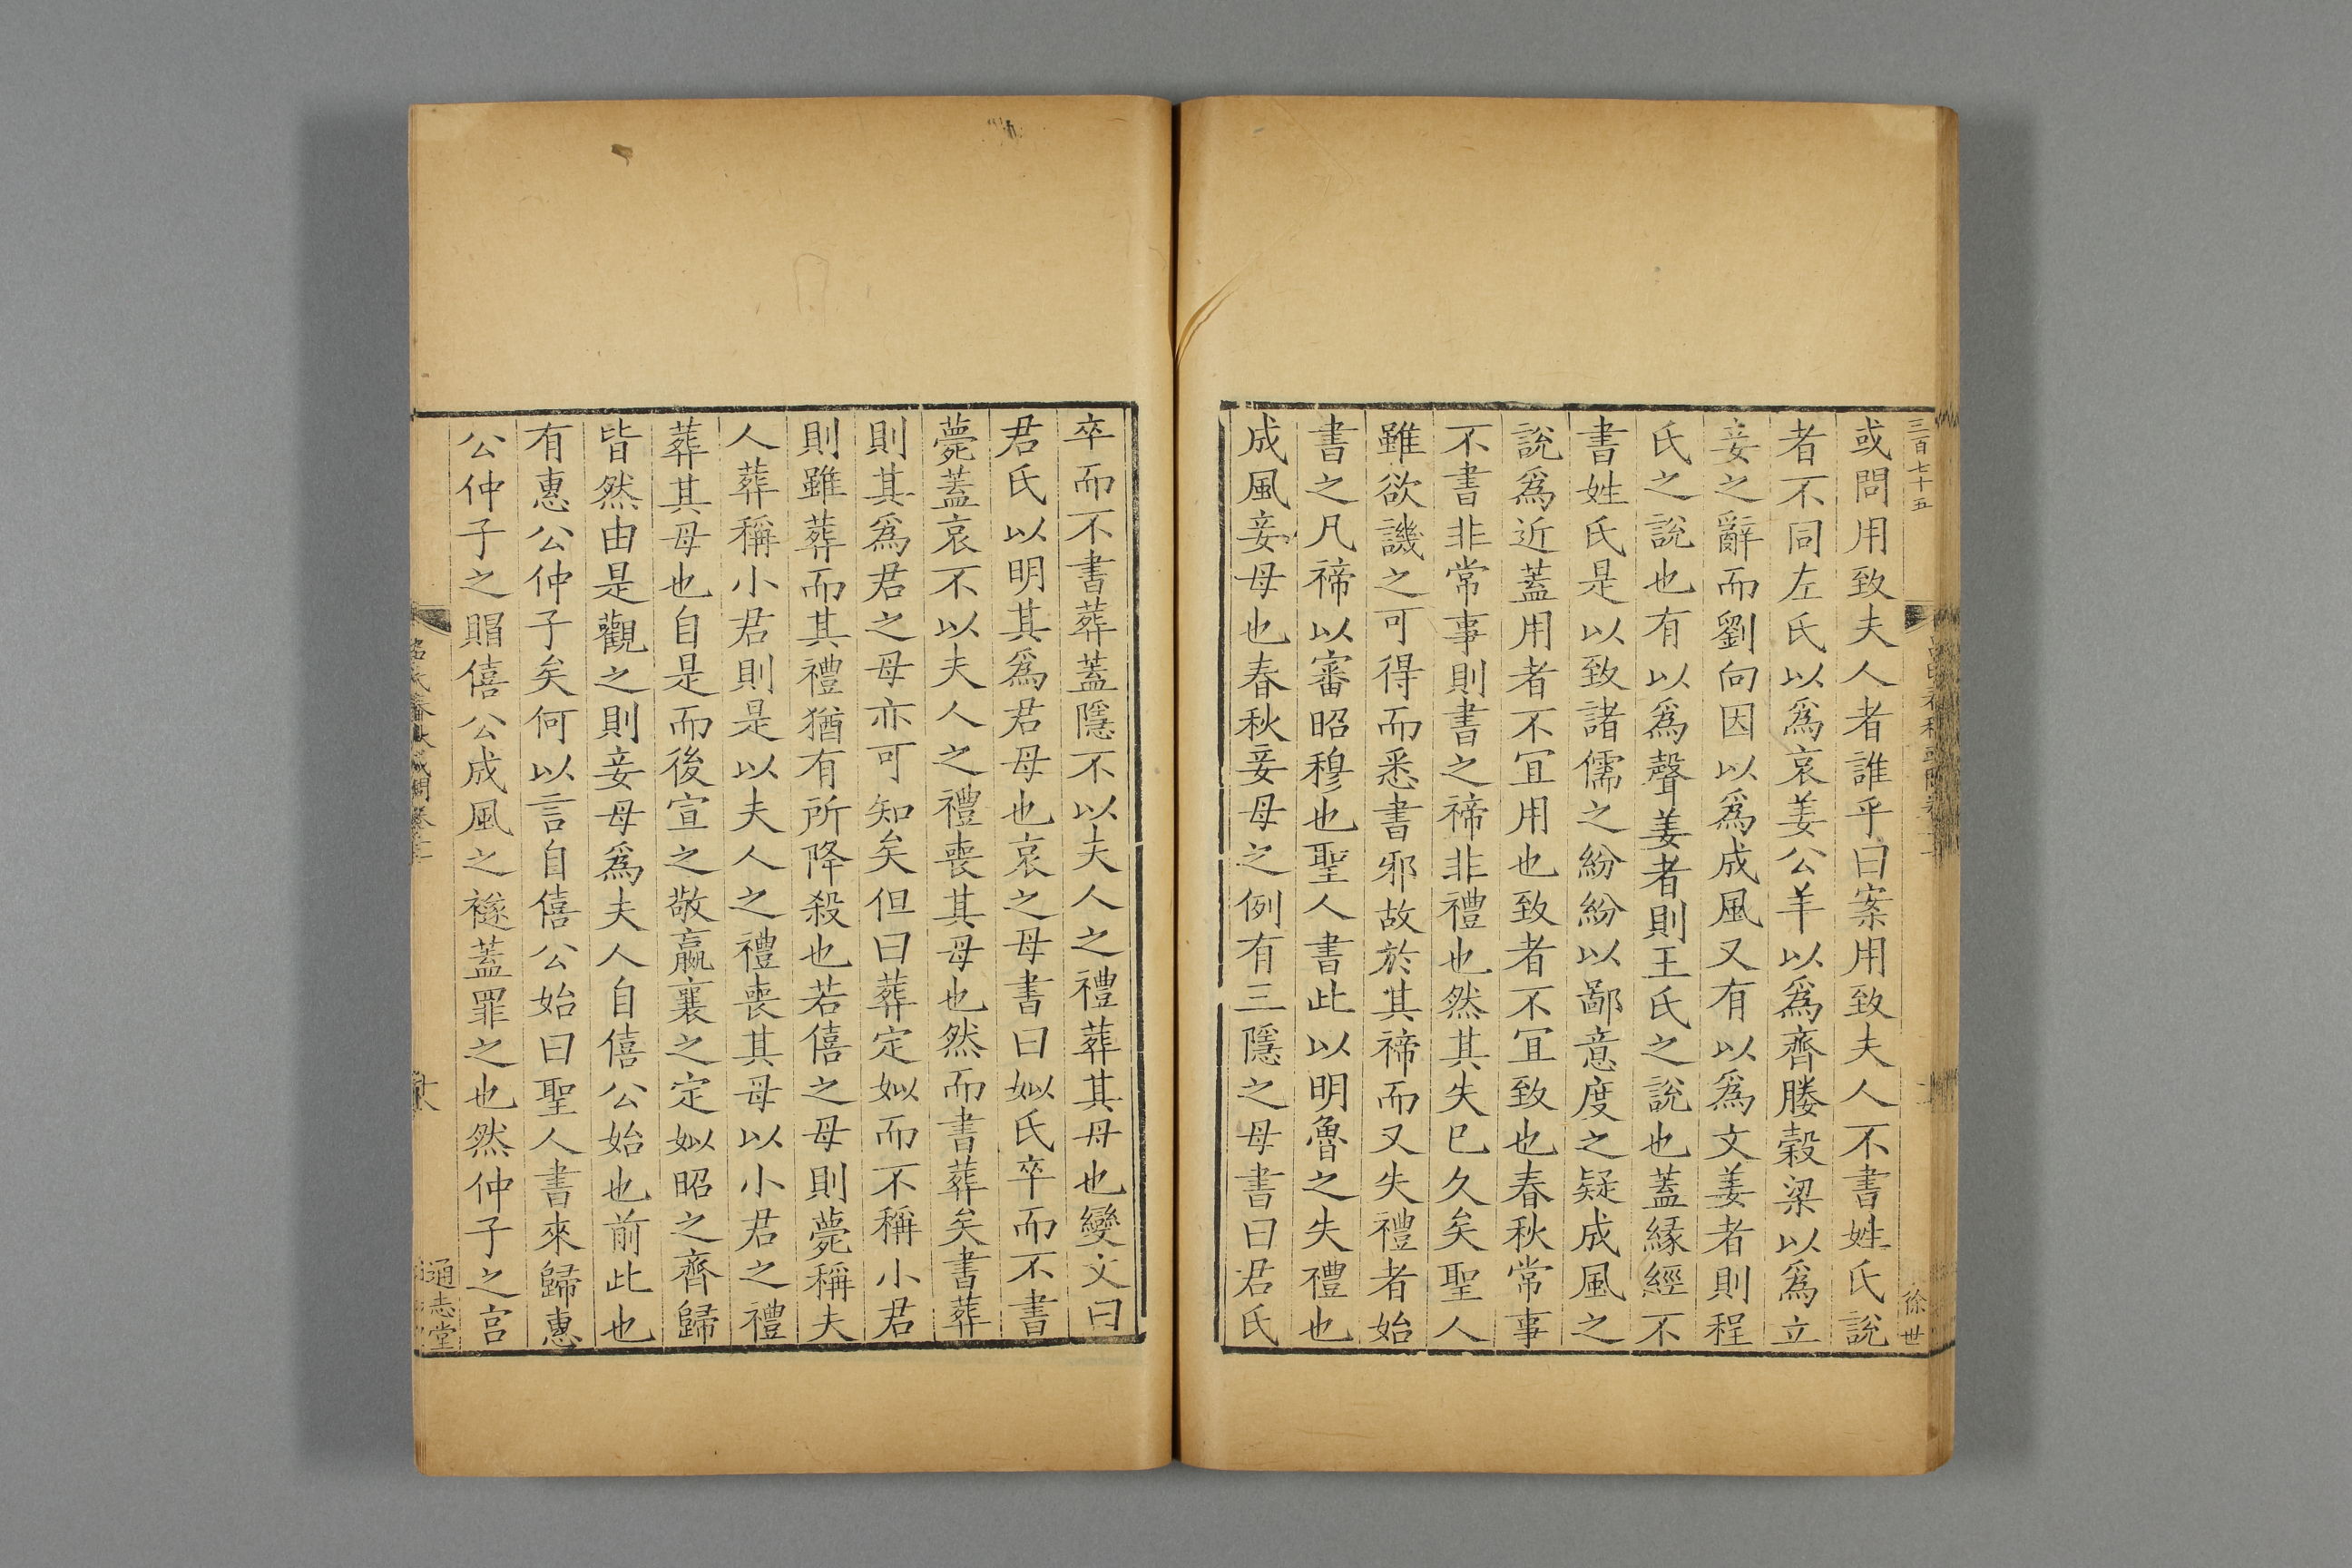 三百七十五
徐世
或問用致夫人者誰乎曰案用致夫人不書姓氏說
者不同左氏以爲哀姜公羊以爲齊媵穀梁以爲立
妾之辭而劉向因以爲成風又有以爲文姜者則程
氏之說也有以爲聲姜者則王氏之說也蓋緣經不
書姓氏是以致諸儒之紛紛以鄙意度之疑成風之
說爲近蓋用者不冝用也致者不冝致也春秋常事
不書非常事則書之禘非禮也然其失已久矣聖人
雖欲譏之可得而悉書邪故於其禘而又失禮者始
書之凡禘以審昭穆也聖人書此以明魯之失禮也
成風妾母也春秋妾母之例有三隱之母書曰君氏
卒而不書葬蓋隱不以夫人之禮葬其母也變文曰
君氏以明其爲君母也哀之母書曰姒氏卒而不書
薨蓋哀不以夫人之禮喪其母也然而書葬矣書葬
則其爲君之母亦可知矣但曰葬定姒而不稱小君
則雖葬而其禮猶有所降殺也若僖之母則薨稱夫
人葬稱小君則是以夫人之禮喪其母以小君之禮
葬其母也自是而後宣之敬嬴襄之定姒昭之齊歸
皆然由是觀之則妾母爲夫人自僖公始也前此也
有惠公仲子矣何以言自僖公始曰聖人書來歸惠
公仲子之賵僖公成風之襚蓋罪之也然仲子之宮
通志堂